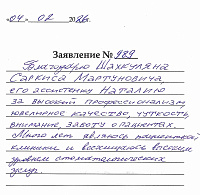 «04» 02 2026г.
Заявление № 989
Благодарю Шахкуляна
Саркиса Мартуновича,
его ассистенту Наталию
за высокий профессионализм,
ювелирное качество, чуткость,
внимание, заботу о пациентах.
Много лет являюсь пациенткой
клиники и восхищаюсь высоким
уровнем стоматологических
услуг.